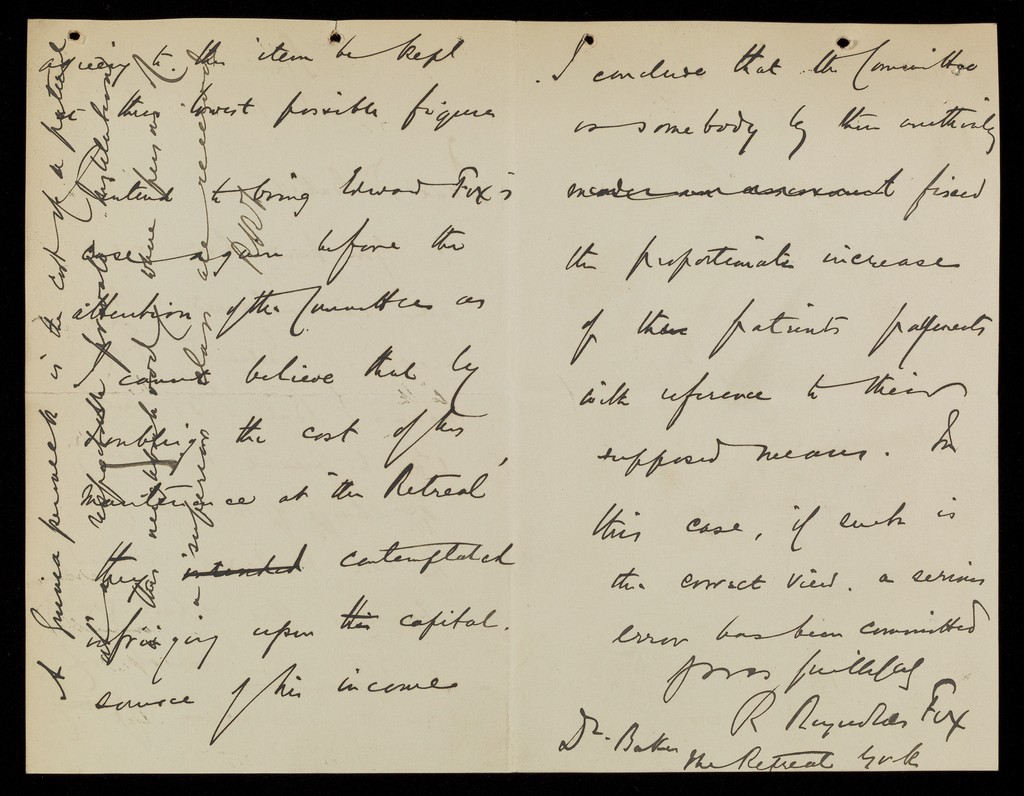 agreeing to this item be kept
at the lowest possible figure
intend to bring Edward Fox's
case again before the
attention of the Committee as
I cannot believe that by
doubling the cost of his
maintenance at the Retreat
they intended contemplated
infringing upon this capital.
source of his income
I conclude that the Committee
or somebody by their authority
made an assessment fixed
the proportionate increase
of these patients payments
with reference to their
supposed means. In
this case, if such is
the correct view, a serious
error has been committed
Yours faithfully
R Reynolds Fox
Dr. Baker
The Retreat York
A Guinea per week is the cost of a patient
at respectable private Institutions
in this neighbourhood where persons of
a superior class are received
RRF